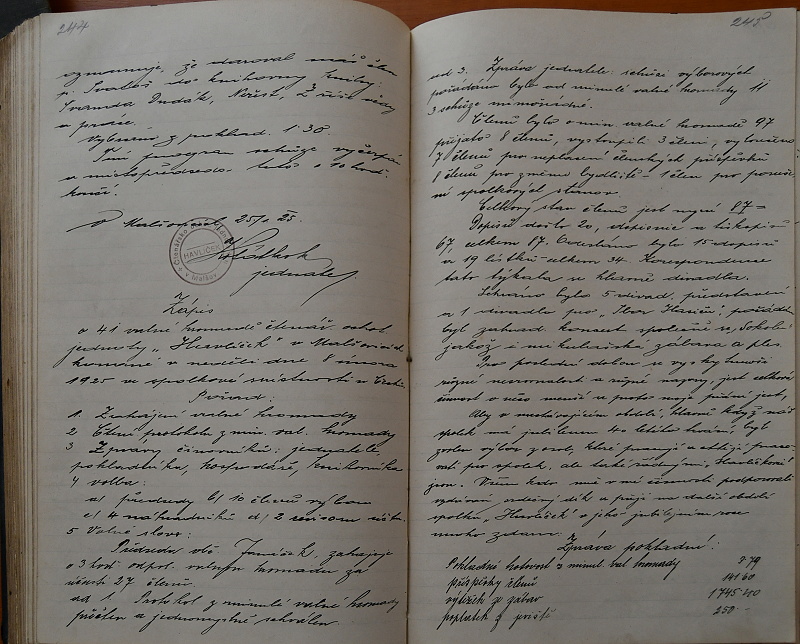 244
oznamuje, že daroval náš člen
p. Svatoš do knihovny
a práce.
Vybráno z poklad. 1·30.
Tím program schůze vyčerpán
a místopředseda tuto o 10 hod.
končí.
V Malšovicích 25/1 25.
HAVLÍČEK
jednatel
Zápis
o 41 valné hromadě čtenář. ochot.
jednoty „Havlíček" v Malšovicích
konané v neděli dne 8 února
1925 ve spolkové místnosti
Pořad:
1. Zahájení valné hromady
2 Čtení protokolu z min. val. hromady
3 Zprávy činovníků: jednatele,
pokladníka, hospodáře, knihovníka
4 volba:
a/ předsedy b/ 10 členů výboru
c/ 4 náhradníků d/ 2 revisorů účtů.
5 Volné slovo:
Předseda zahajuje
o 3 hod. odpol. valnou hromadu za
účasti 27 členů.
ad 1. Protokol z minulé valné hromady
přečten a jednomyslně schválen.
245
ad 3. Zpráva jednatele: schůzí výborových
pořádáno bylo od minulé valné hromady 11
3 schůze mimořádné.
Členů bylo o min. valné hromadě 97
přijato 8 členů, vystoupili 3 členi, vyloučeno
7 členů pro neplacení členských příspěvků
8 členů pro změnu bydliště – 1 člen pro porušení
spolkových stanov.
Celkový stav členů jest nyní 87
Dopisů došlo 20, dopisnic a tiskopisů
67 celkem 87. Odesláno bylo 15 dopisů
a 19 lístků celkem 34. Korespondence
tato týkala se hlavně divadla.
Sehráno bylo 5 divad. představení
a 1 divadlo pro „Sbor Hasičů", pořádán
byl zahrad. koncert společně se „Sokolem"
jakož i mikulášská zábava a ples.
různé nesrovnalosti a různé názory, jest celková
činnost o něco menší a proto moje přání jest,
Aby v nastávajícím období, hlavně když náš
spolek má jubileum 40 letého trvání, byl
zvolen výbor z osob, které pracují a chtějí pracovati
pro spolek, ale také řádnými „Havlíčkovci"
jsou. Všem kdo mne v mé činnosti podporovali
vzdávám srdečný dík a přeji na další období
spolku „Havlíček" v jeho jubilejním roce
mnoho zdaru.
Zpráva pokladní:
Pokladní hotovost z minul. val hromady 79
příspěvky členů 141 60
výtěžek ze zábav 1745 40
poplatek z 250 –